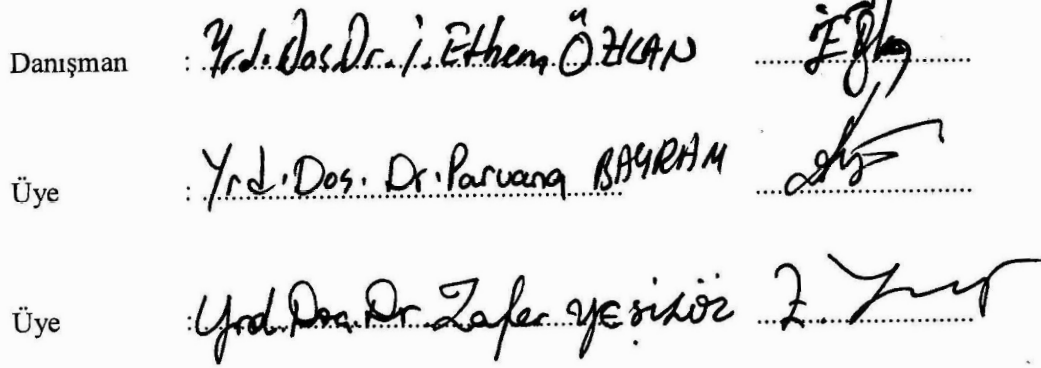 Danışman : Yrd. Dos. Dr. İ. Ethem ÖZKAN
Üye : Yrd. Dos. Dr. Parvana BAYRAM
Üye : Yrd. Doç. Dr. Zafer YEŞİLÖZ Z.